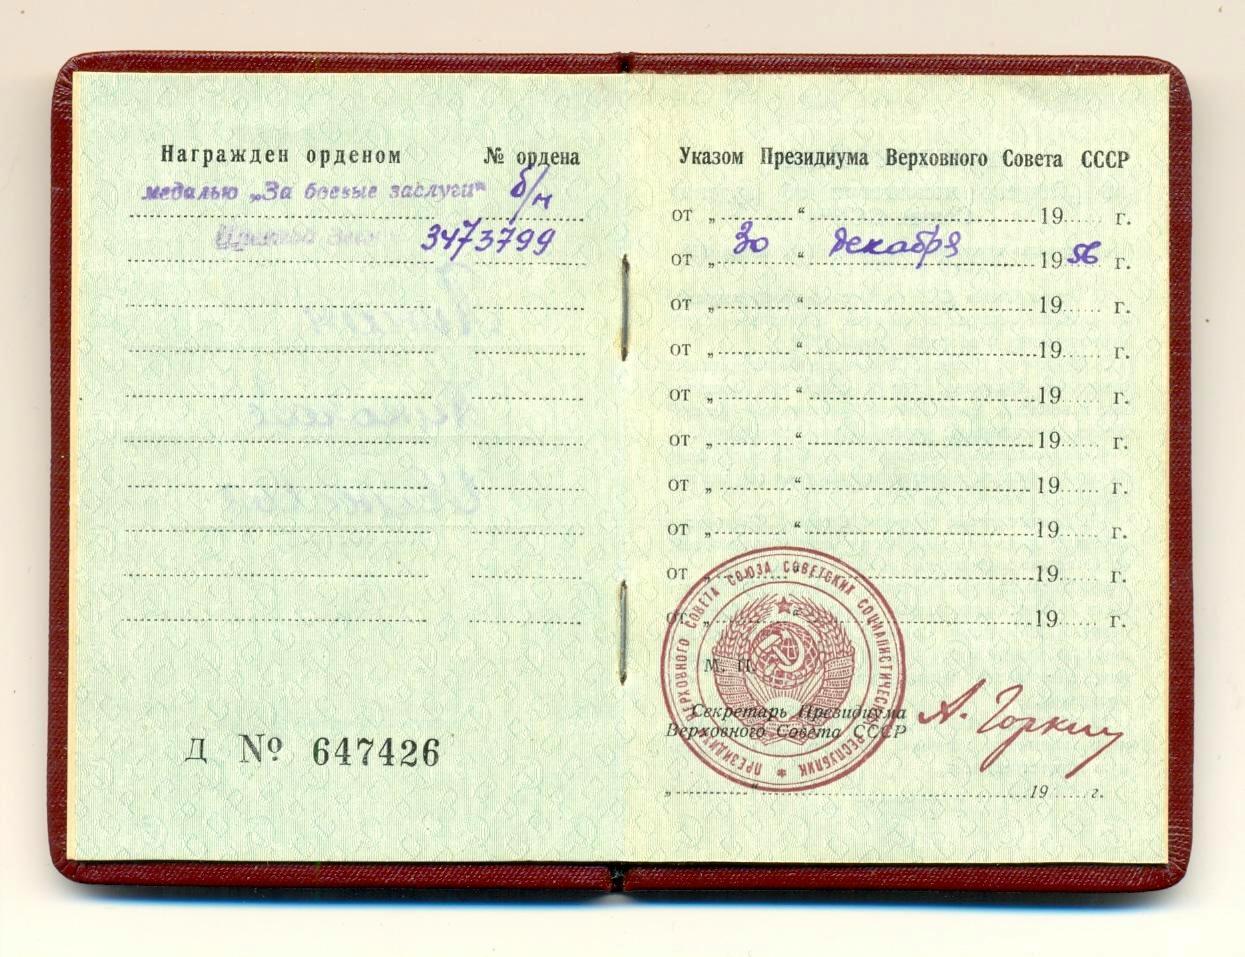 Награжден орденом № ордена
медалью „За боевые заслуги“ б/н
3473799
Д № 647426
Указом Президиума Верховного Совета СССР
от „ “ 19 г.
от „ 30 “ декабря 1956 г.
от „ “ 19 г.
от „ “ 19 г.
от „ “ 19 г.
от „ “ 19 г.
от „ “ 19 г.
от „ “ 19 г.
от „ “ 19 г.
от „ “ 19 г.
М. П.
Секретарь Президиума
Верховного Совета СССР
А. Горкин
„ “ 19 г.
ПРЕЗИДИУМ ВЕРХОВНОГО СОВЕТА СОЮЗА СОВЕТСКИХ СОЦИАЛИСТИЧЕСКИХ РЕСПУБЛИК